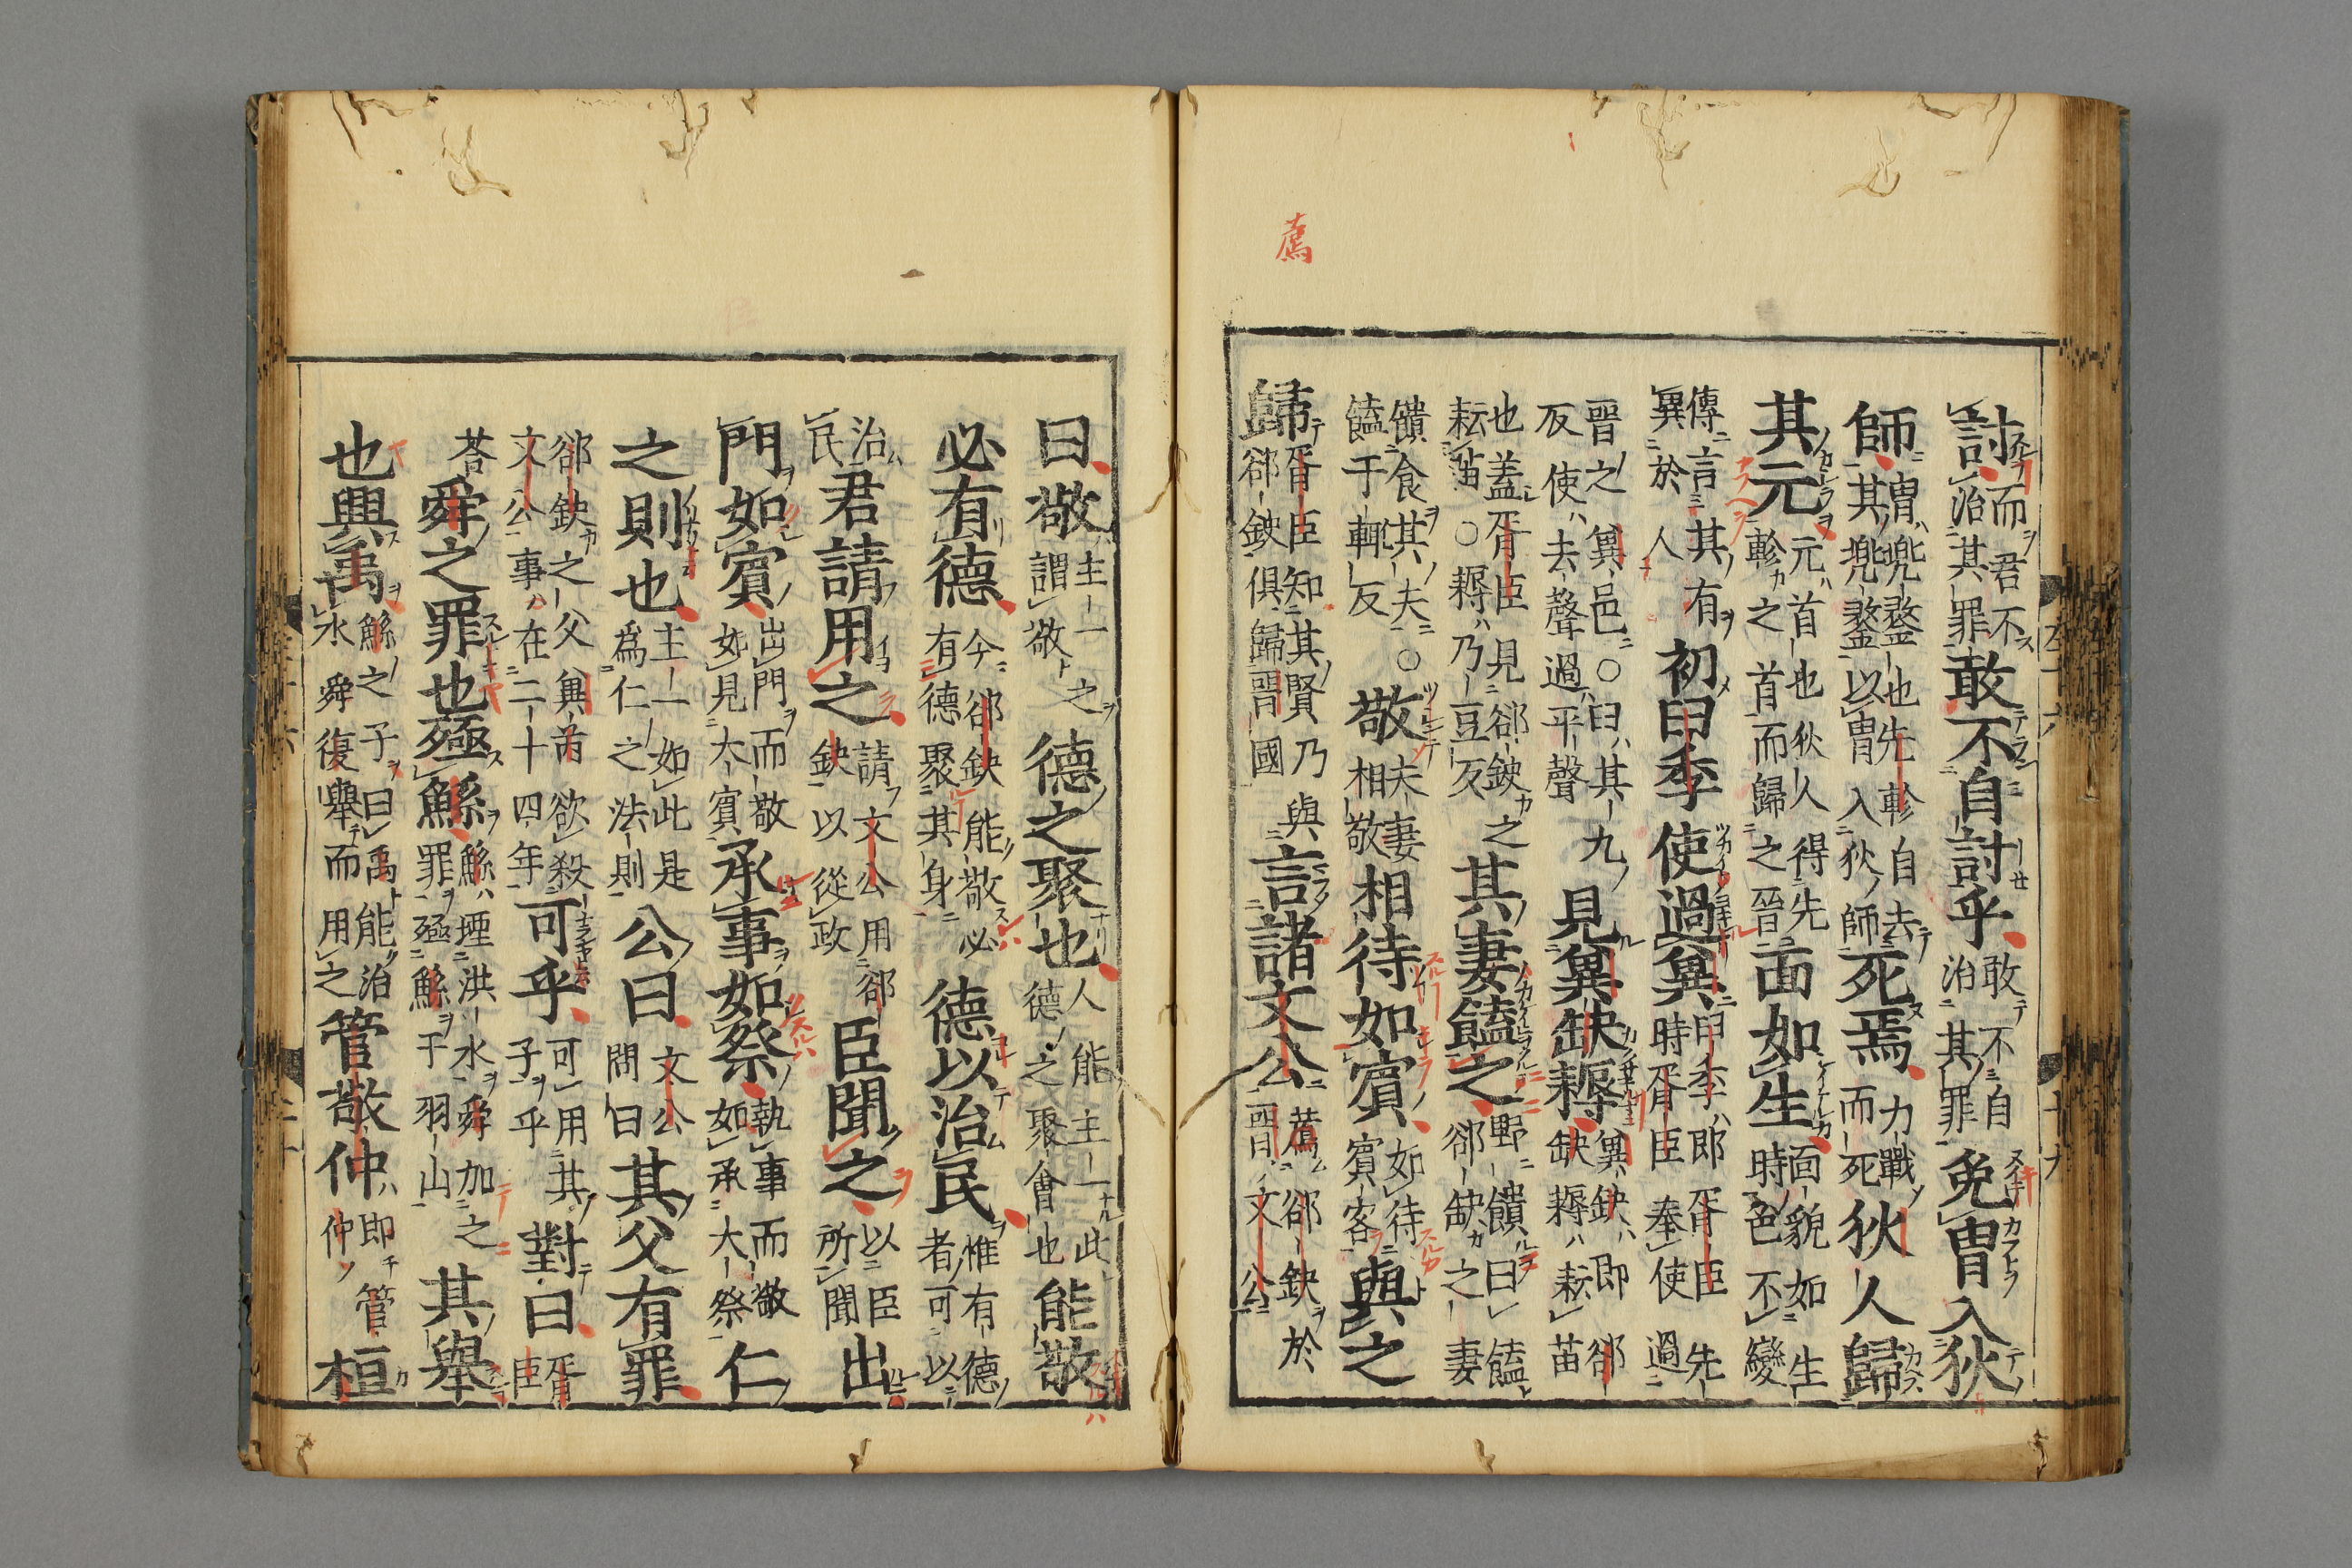 薦
討而君不治其罪敢不自討乎敢不自治其罪免冑入狄
師冑兜鍪也先軫自去其兜鍪以冑入狄師死焉力戰而死狄人歸
其元元首也狄人得先軫之首而歸之晉面如生面貌如生時色不變
傳言其有異於人初臼季使過冀臼季即胥臣先時胥臣奉使過
晋之冀邑○臼其九反使去聲過平聲見冀缺耨冀缺即郤缺耨耘苗
也蓋胥臣見郤缺之耘苗○耨乃豆反其妻饁之野饋曰饁郤缺之妻
饋食其夫○饁于輒反敬夫妻相敬相待如賓如待賓客與之
歸胥臣知其賢乃與郤缺俱歸晋國言諸文公薦郤缺於晋文公
曰敬主一之謂敬德之聚也人能主一此德之聚會也能敬
必有德今郤缺能敬必有德聚其身德以治民惟有德者可以
治民君請用之請文公用郤缺以從政臣聞之以臣所聞出
門如賓出門而敬如見大賓承事如祭執事而敬如承大祭仁
之則也主一如此是爲仁之法則公曰文公問曰其父有罪
郤缺之父冀芮欲殺文公事在二十四年可乎可用其子乎對曰胥臣
荅舜之罪也殛鯀鯀堙洪水舜加之罪殛鯀于羽山其舉
也興禹鯀之子曰禹能治水舜復舉而用之管敬仲即管仲桓